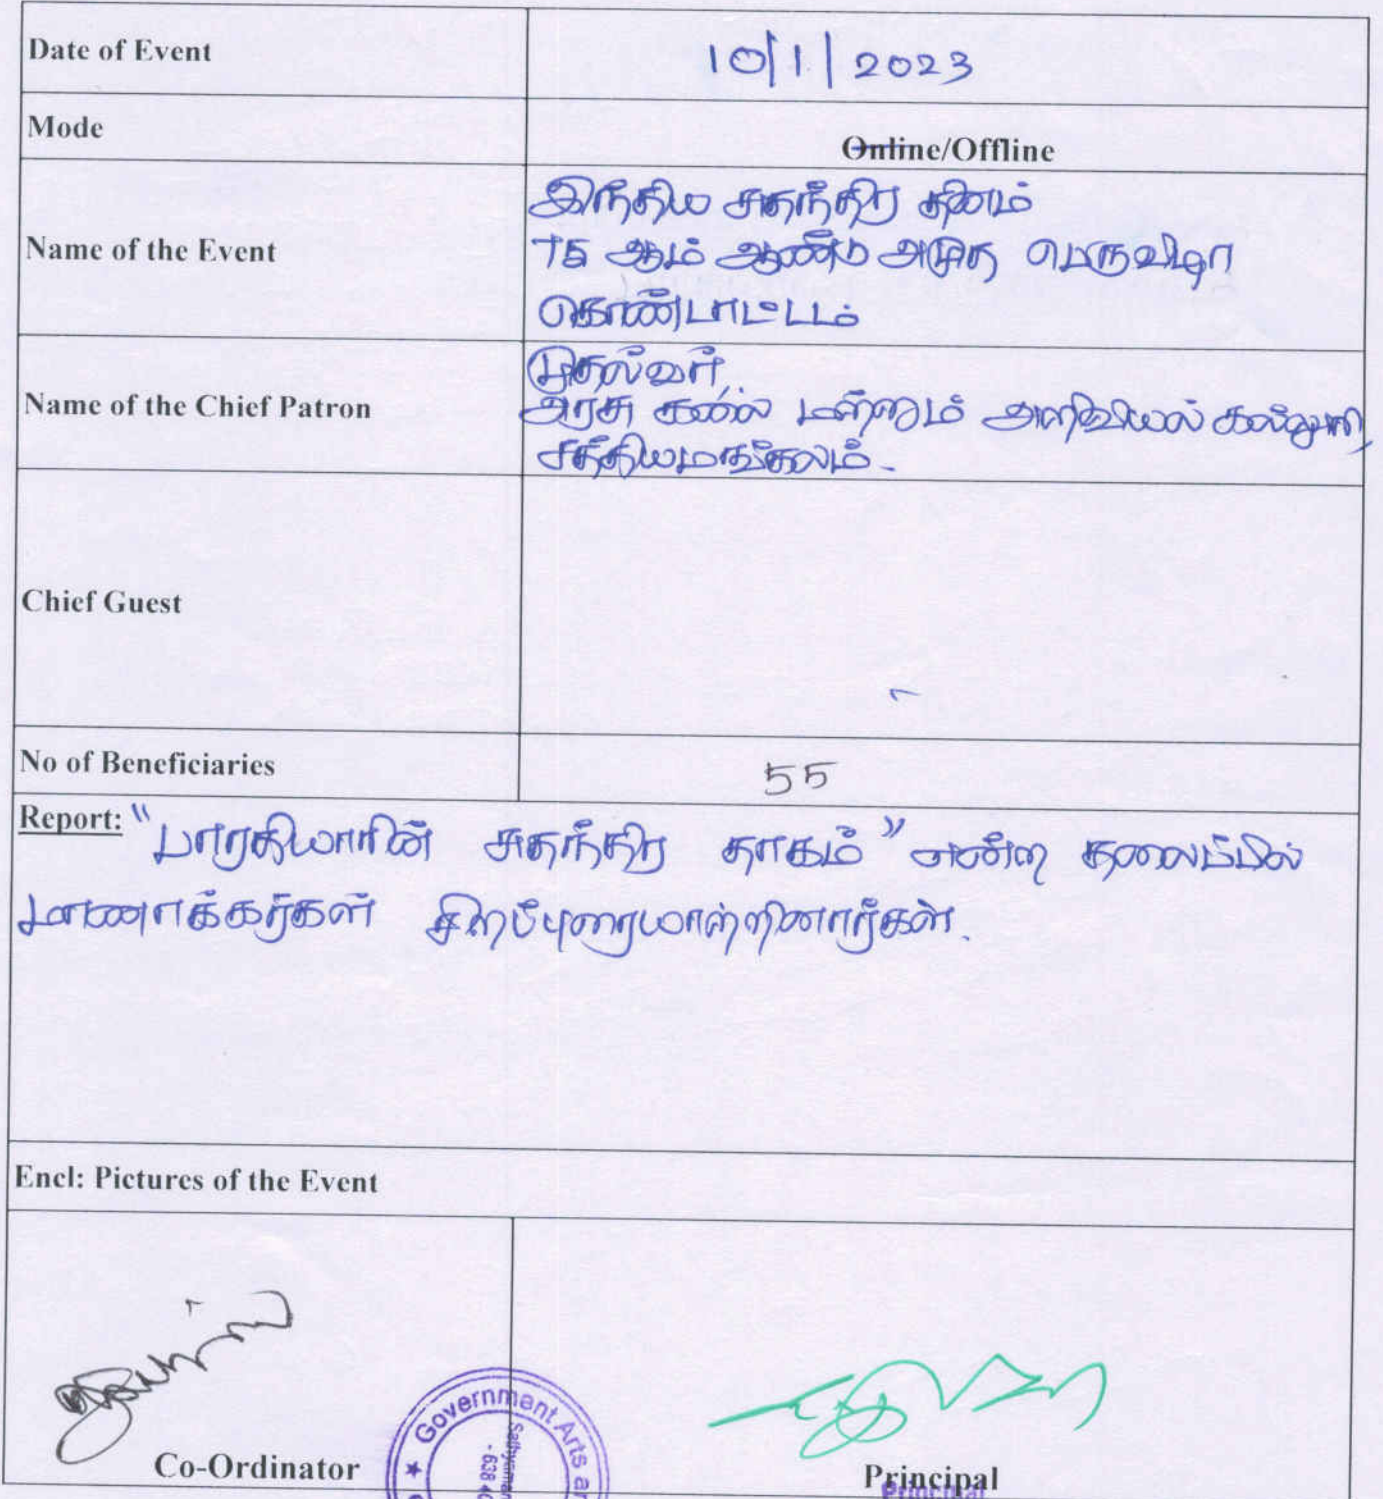 Date of Event 10/1/2023
Mode Online/Offline
இந்திய சுதந்திர தினம்
Name of the Event 75 ஆம் ஆண்டு அமுத பெருவிழா
கொண்டாட்டம்
முதல்வர்,
Name of the Chief Patron அரசு கலை மற்றும் அறிவியல் கல்லூரி,
சத்தியமங்கலம்.
Chief Guest
No of Beneficiaries 55
Report: "பாரதியாரின் சுதந்திர தாகம்" என்ற தலைப்பில்
மாணாக்கர்கள் சிறப்புரையாற்றினார்கள்.
Encl: Pictures of the Event
Government Arts
Co-Ordinator
Principal
Principal